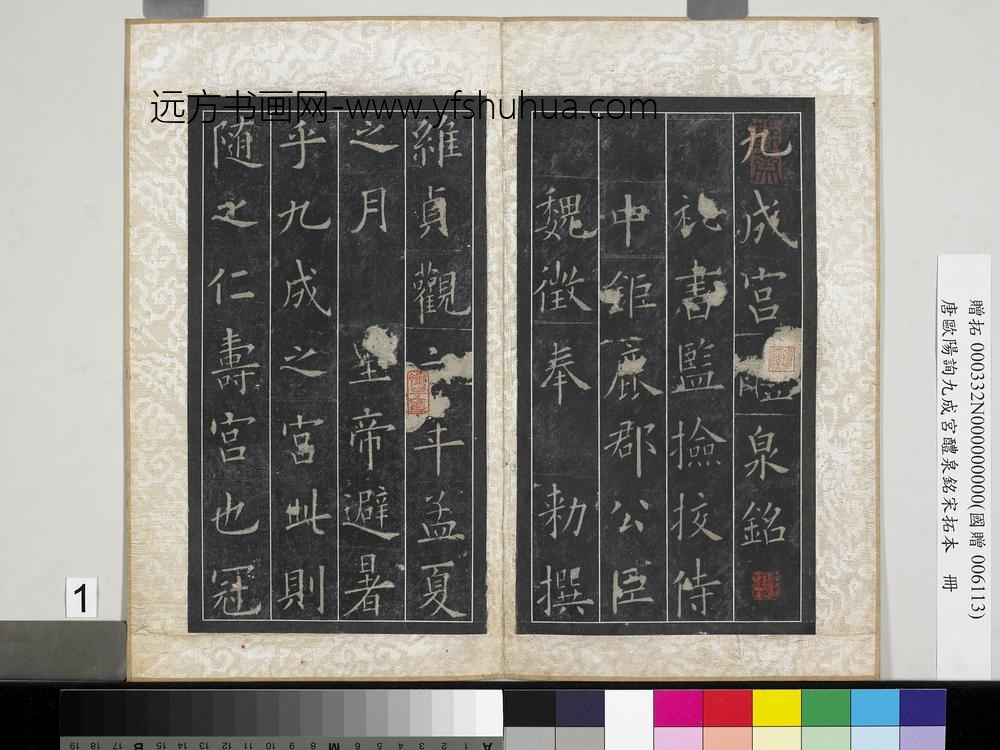 远方书画网-www.yfshuhua.com
九成宮醴泉銘
祕書監撿挍侍
中鉅鹿郡公臣
魏徵奉 勅撰
維貞觀六年孟夏
之月 皇帝避暑
乎九成之宮此則
隨之仁壽宮也冠
贈拓 000332N000000000(國贈 006113)
唐歐陽詢九成宮醴泉銘宋拓本 冊
1
19 18 17 16 15 B 12 11 10 9 8 M 6 5 4 3 2 1 A